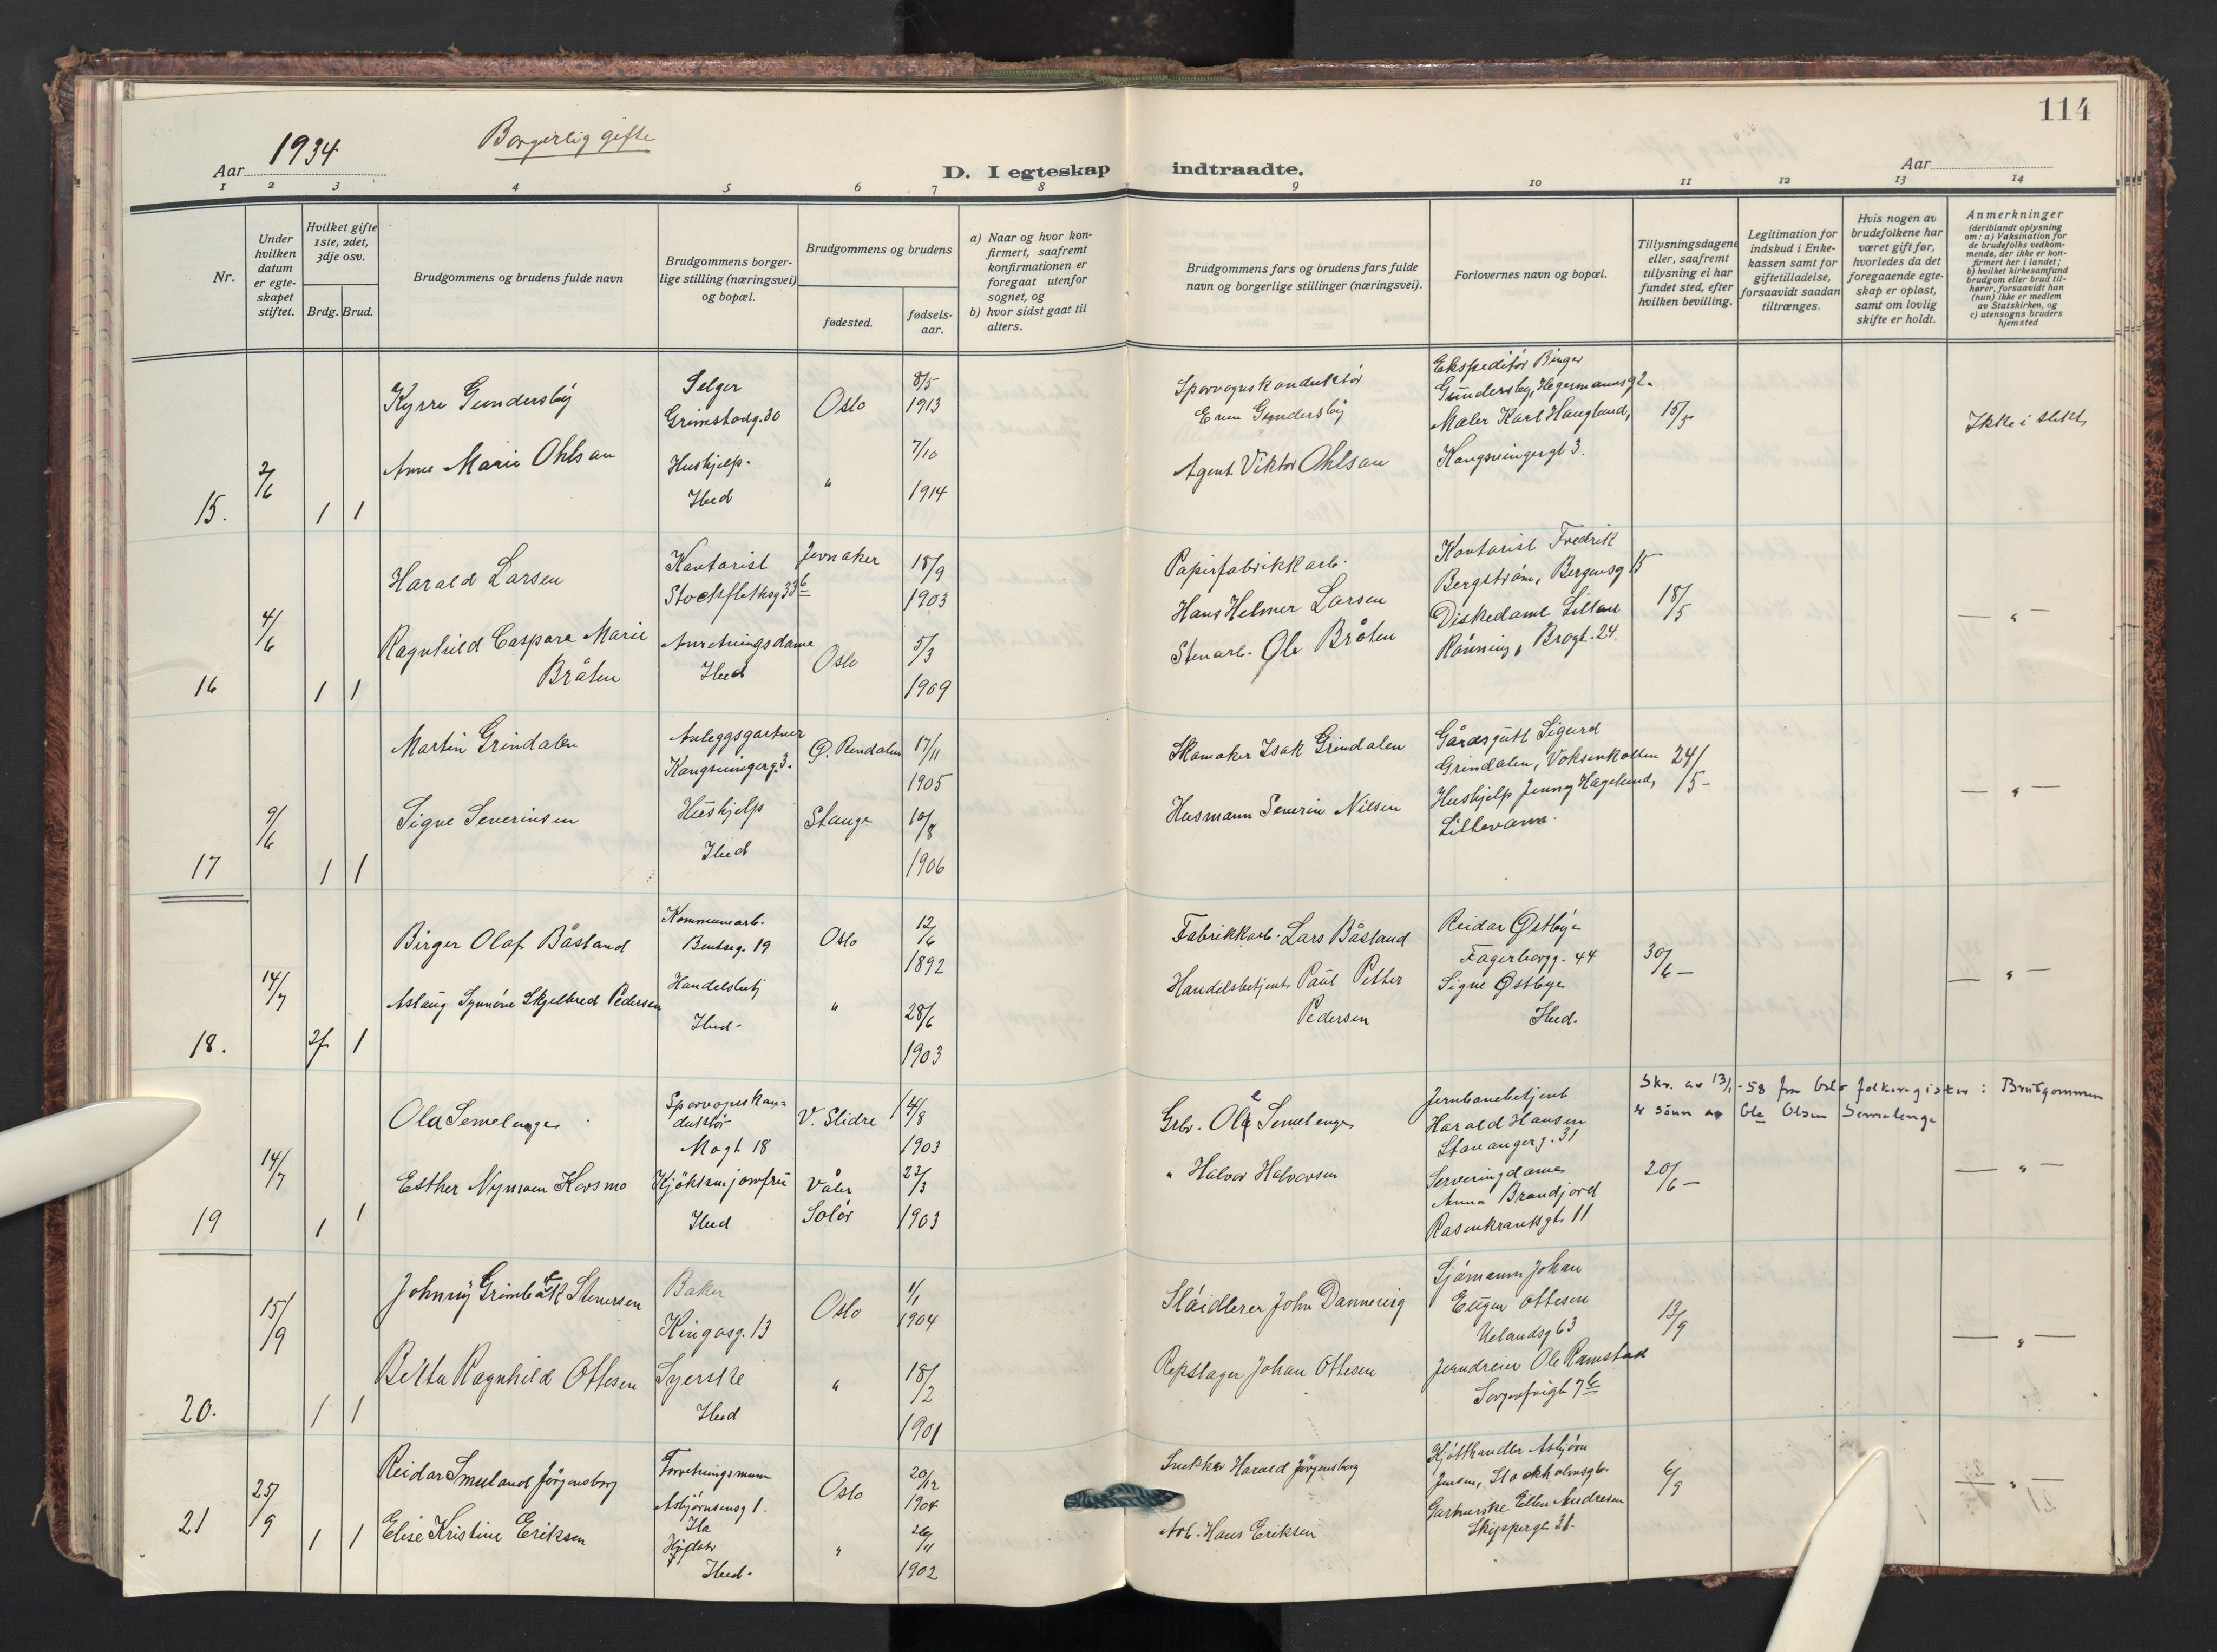 114
Aar 1934
Borgerlig gifte
D. I egteskap indtraadte.
Aar
1 2 3 4 5 6 7 8 9 10 11 12 13 14
Nr.
Under
hvilken
datum
er egte-
skapet
stiftet.
Hvilket gifte
1ste, 2det,
3dje osv.
Brdg. Brud.
Brudgommens og brudens fulde navn
Brudgommens borger-
lige stilling (næringsvei)
og bopæl.
Brudgommens og brudens
fødested.
fødsels-
aar.
a) Naar og hvor kon-
firmert, saafremt
konfirmationen er
foregaat utenfor
sognet, og
b) hvor sidst gaat til
alters.
Brudgommens fars og brudens fars fulde
navn og borgerlige stillinger (næringsvei).
Forlovernes navn og bopæl.
Tillysningsdagene
eller, saafremt
tillysning ei har
fundet sted, efter
hvilken bevilling.
Legitimation for
indskud i Enke-
kassen samt for
giftetilladelse,
forsaavidt saadan
tiltrænges.
Hvis nogen av
brudefolkene har
været gift før,
hvorledes da det
foregaaende egte-
skap er opløst,
samt om lovlig
skifte er holdt.
Anmerkninger
(deriblandt oplysning
om: a) Vaksination for
de brudefolks vedkom-
mende, der ikke er kon-
firmert her i landet;
b) hvilket kirkesamfund
brudgom eller brud til-
hører, forsaavidt han
(hun) ikke er medlem
av Statskirken, og
c) utensogns bruders
hjemsted
15.
2/6
1 1
Kyrre Gundersby
Selger
Grimstadg. 30
Oslo
8/5
1913
Sporvognskonduktör
Gundersby
Ekspeditör Birger
Gundersby, Hegermannsg 2.
Maler Karl Haugland,
Kongsvingergt 3.
15/5
Ikke i slekt
Anne Marie Ohlson
Hushjelp.
Ibid
"
7/10
1914
Agent Viktor Ohlson
16
4/6
1 1
Harald Larsen
Kontorist
Stockflethsg 33 b
Jevnaker
18/9
1903
Papirfabrikkarb.
Hans Helmer Larsen
Kontorist Fredrik
Bergström, Bergensg 15
Diskedame Lillian
Rönning, Brogt. 24
18/5
— " —
Ragnhild Caspara Marie
Bråten
Anretningsdame
Ibid
Oslo
5/3
1909
Stenarb. Ole Bråten
17
9/6
1 1
Martin Grindalen
Anleggsgartner
Kongsvingerg. 3.
Ø. Rendalen
17/11
1905
Skomaker Isak Grindalen
Gårdsgutt Sigurd
Grindalen, Voksenkollen
Hushjelp Jenny Hagelund,
Lillevann.
24/5 -
— " —
Signe Severinsen
Hushjelp
Ibid
Stange
10/8
1906
Husmann Severin Nilsen
18.
14/7
2f. 1
Birger Olaf Båsland
Kommunearb.
Bentseg. 19
Oslo
12/6
1892
Fabrikkarb. Lars Båsland
Reidar Østbye
Fagerborgg. 44
Signe Østbye
Ibid.
30/6 —
— " —
Aslaug Synnöve Skjelbred Pedersen
Handelsbetj
Ibid -
"
28/6
1903
Handelsbetjent Paul Petter
Pedersen
19
14/7
1 1
Ola Semelenge
Sporvognskon=
duktör
Mogt 18
V. Slidre
14/8
1903
Grbr. Ole Semelenge
Jernbanebetjent
Harald Hansen
Stavangerg. 31
Serveringdame
Anna Brandjord
Rosenkrantsgt. 11
20/6 —
Skr. av 13/1-58 fra Oslo folkeregister: Brudgommen
er sönn av Ole Olsen Semelenge
— " —
Esther Nymoen Kosmo
Kjökkenjomfru
Ibid
Våler
Solör
22/3
1903
" Halvor Halvorsen
20.
15/9
1 1
Johnny Grimbæk Stenersen
Baker
Kingosg. 13
Oslo
1/1
1904
John Dannevig
Sjömann Johan
Eugen Ottesen
Uelandsg 63
Jerndreier Ole Ramstad
Sorgenfrigt 7 b
13/9
— " —
Berta Ragnhild Ottesen
Syerske
Ibid
"
18/2
1901
Repslager Johan Ottesen
21
25/9
1 1
Reidar Smuland Jörgensborg
Forretningsmann
Asbjörnsensg 1.
Oslo
20/12
1904
Snekker Harald Jörgensborg
Kjötthandler Asbjörn
Jensen, Stockholmsg 6.
Gartnerske Ellen Andresen
Skippergt. 31.
6/9
— " —
Elise Kristine Eriksen
Ibid.
"
26/11
1902
Arb. Hans Eriksen